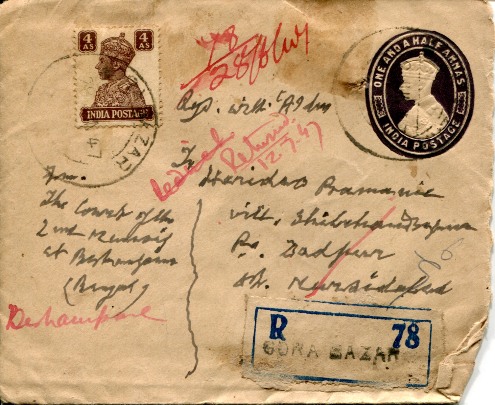 4 AS 4 AS
INDIA POSTAGE
ONE AND A HALF ANNAS
INDIA POSTAGE
28/6/47
Regd. with A/D
Refused
Returned
12.7.47
To
Haridas Pramanic
vill.
Po. Dadpur
Dt. Mursidabad
From
The Court of the
2nd Munsif
at Berhampore
(Bengal)
Berhampore
R 78
GORA BAZAR